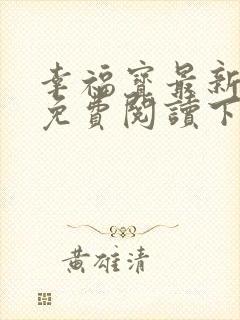 幸福寶最新
免費閱讀下
黃雄清